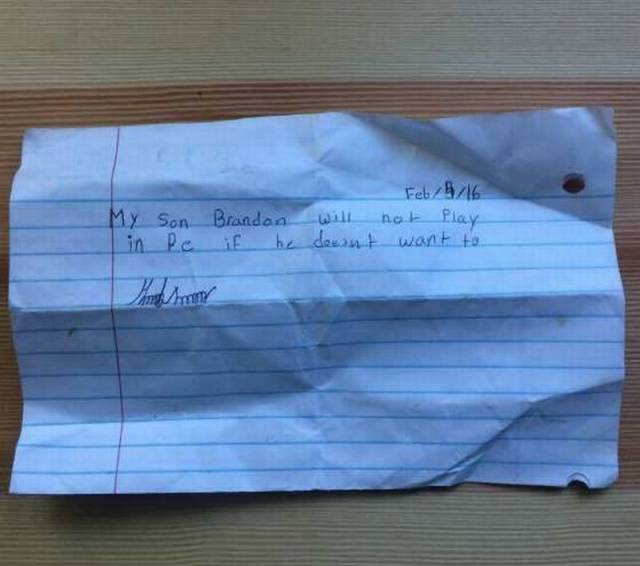 Feb/9/16
My Son Brandon will not Play
in P.e if he doesnt want to